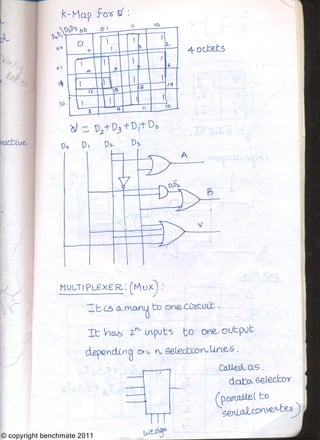 K-Map for V :
D₀D₁ D₂D₃ 00 01 11 10
00 0 1 1 1
0 1 3 2
01 1 1 1 1
4 5 7 6
11 1 1 1 1
12 13 15 14
10 1 1 1 1
8 9 11 10
4 octets
V = D₂+D₃+D₁+D₀
D₀ D₁ D₂ D₃
A
D₁D̅₂
B
V
nactive
MULTIPLEXER : (MUX) :
It is a many to one circuit.
It has 2ⁿ inputs to one output
depending on n selection lines.
Called as.
data selector
(parallel to
serial converter)
wedge
© copyright benchmate 2011